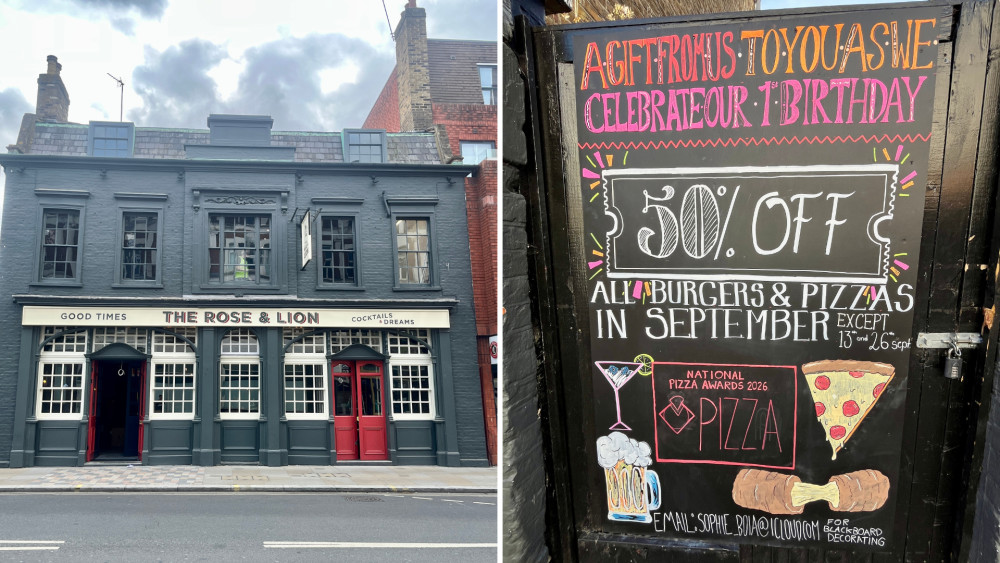 GOOD TIMES
THE ROSE & LION
COCKTAILS
& DREAMS
A GIFT FROM US · TO YOU AS WE ·
CELEBRATE OUR · 1st BIRTHDAY
50% OFF
ALL BURGERS & PIZZAS
IN SEPTEMBER EXCEPT
13th and 26th Sept
NATIONAL
PIZZA AWARDS 2026
PIZZA
EMAIL: SOPHIE_BOIA@ICLOUD.COM FOR
BLACKBOARD
DECORATING